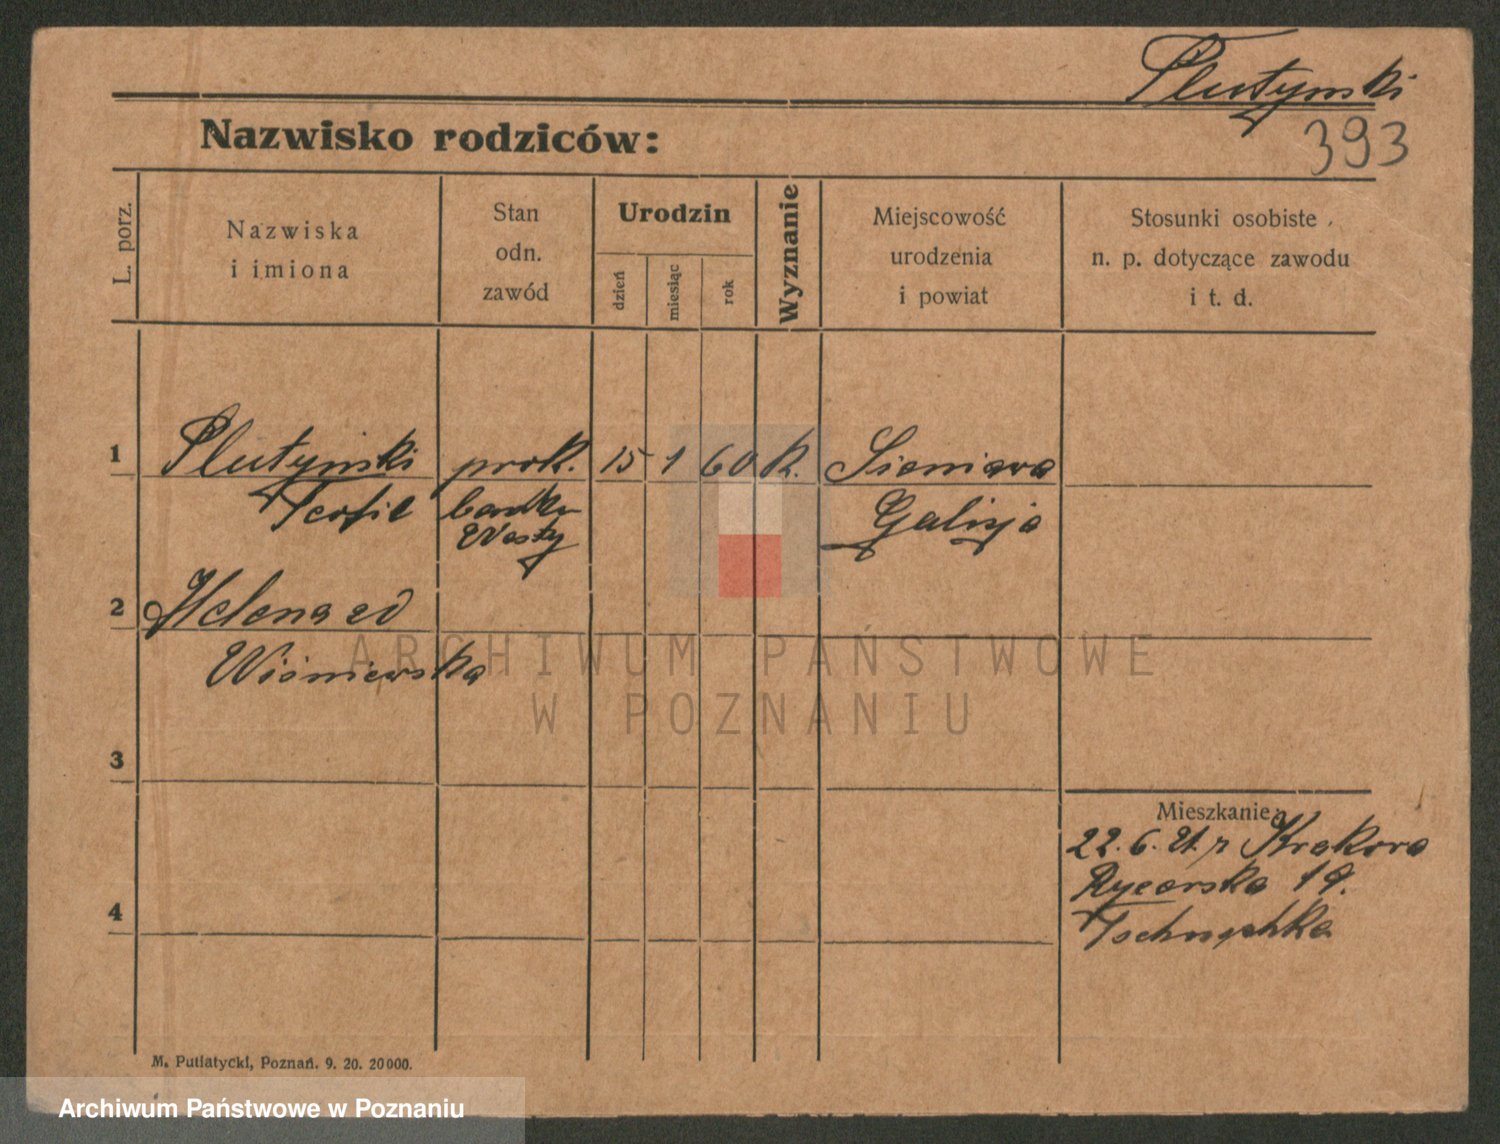 Plutyński
393
Nazwisko rodziców:
L. porz.
Nazwiska
i imiona
Stan
odn.
zawód
Urodzin
dzień
miesiąc
rok
Wyznanie
Miejscowość
urodzenia
i powiat
Stosunki osobiste
n. p. dotyczące zawodu
i t. d.
1
Plutyński prok. 15 1 60 K. Sieniawa
Teofil banku Galizja
Westy
2
Helena zd
Wiśniewska
3
Mieszkanie
22. 6. 21. z Krakowa
Rycerska 19.
4
M. Putiatycki, Poznań. 9. 20. 20000.
ARCHIWUM PAŃSTWOWE
W POZNANIU
Archiwum Państwowe w Poznaniu